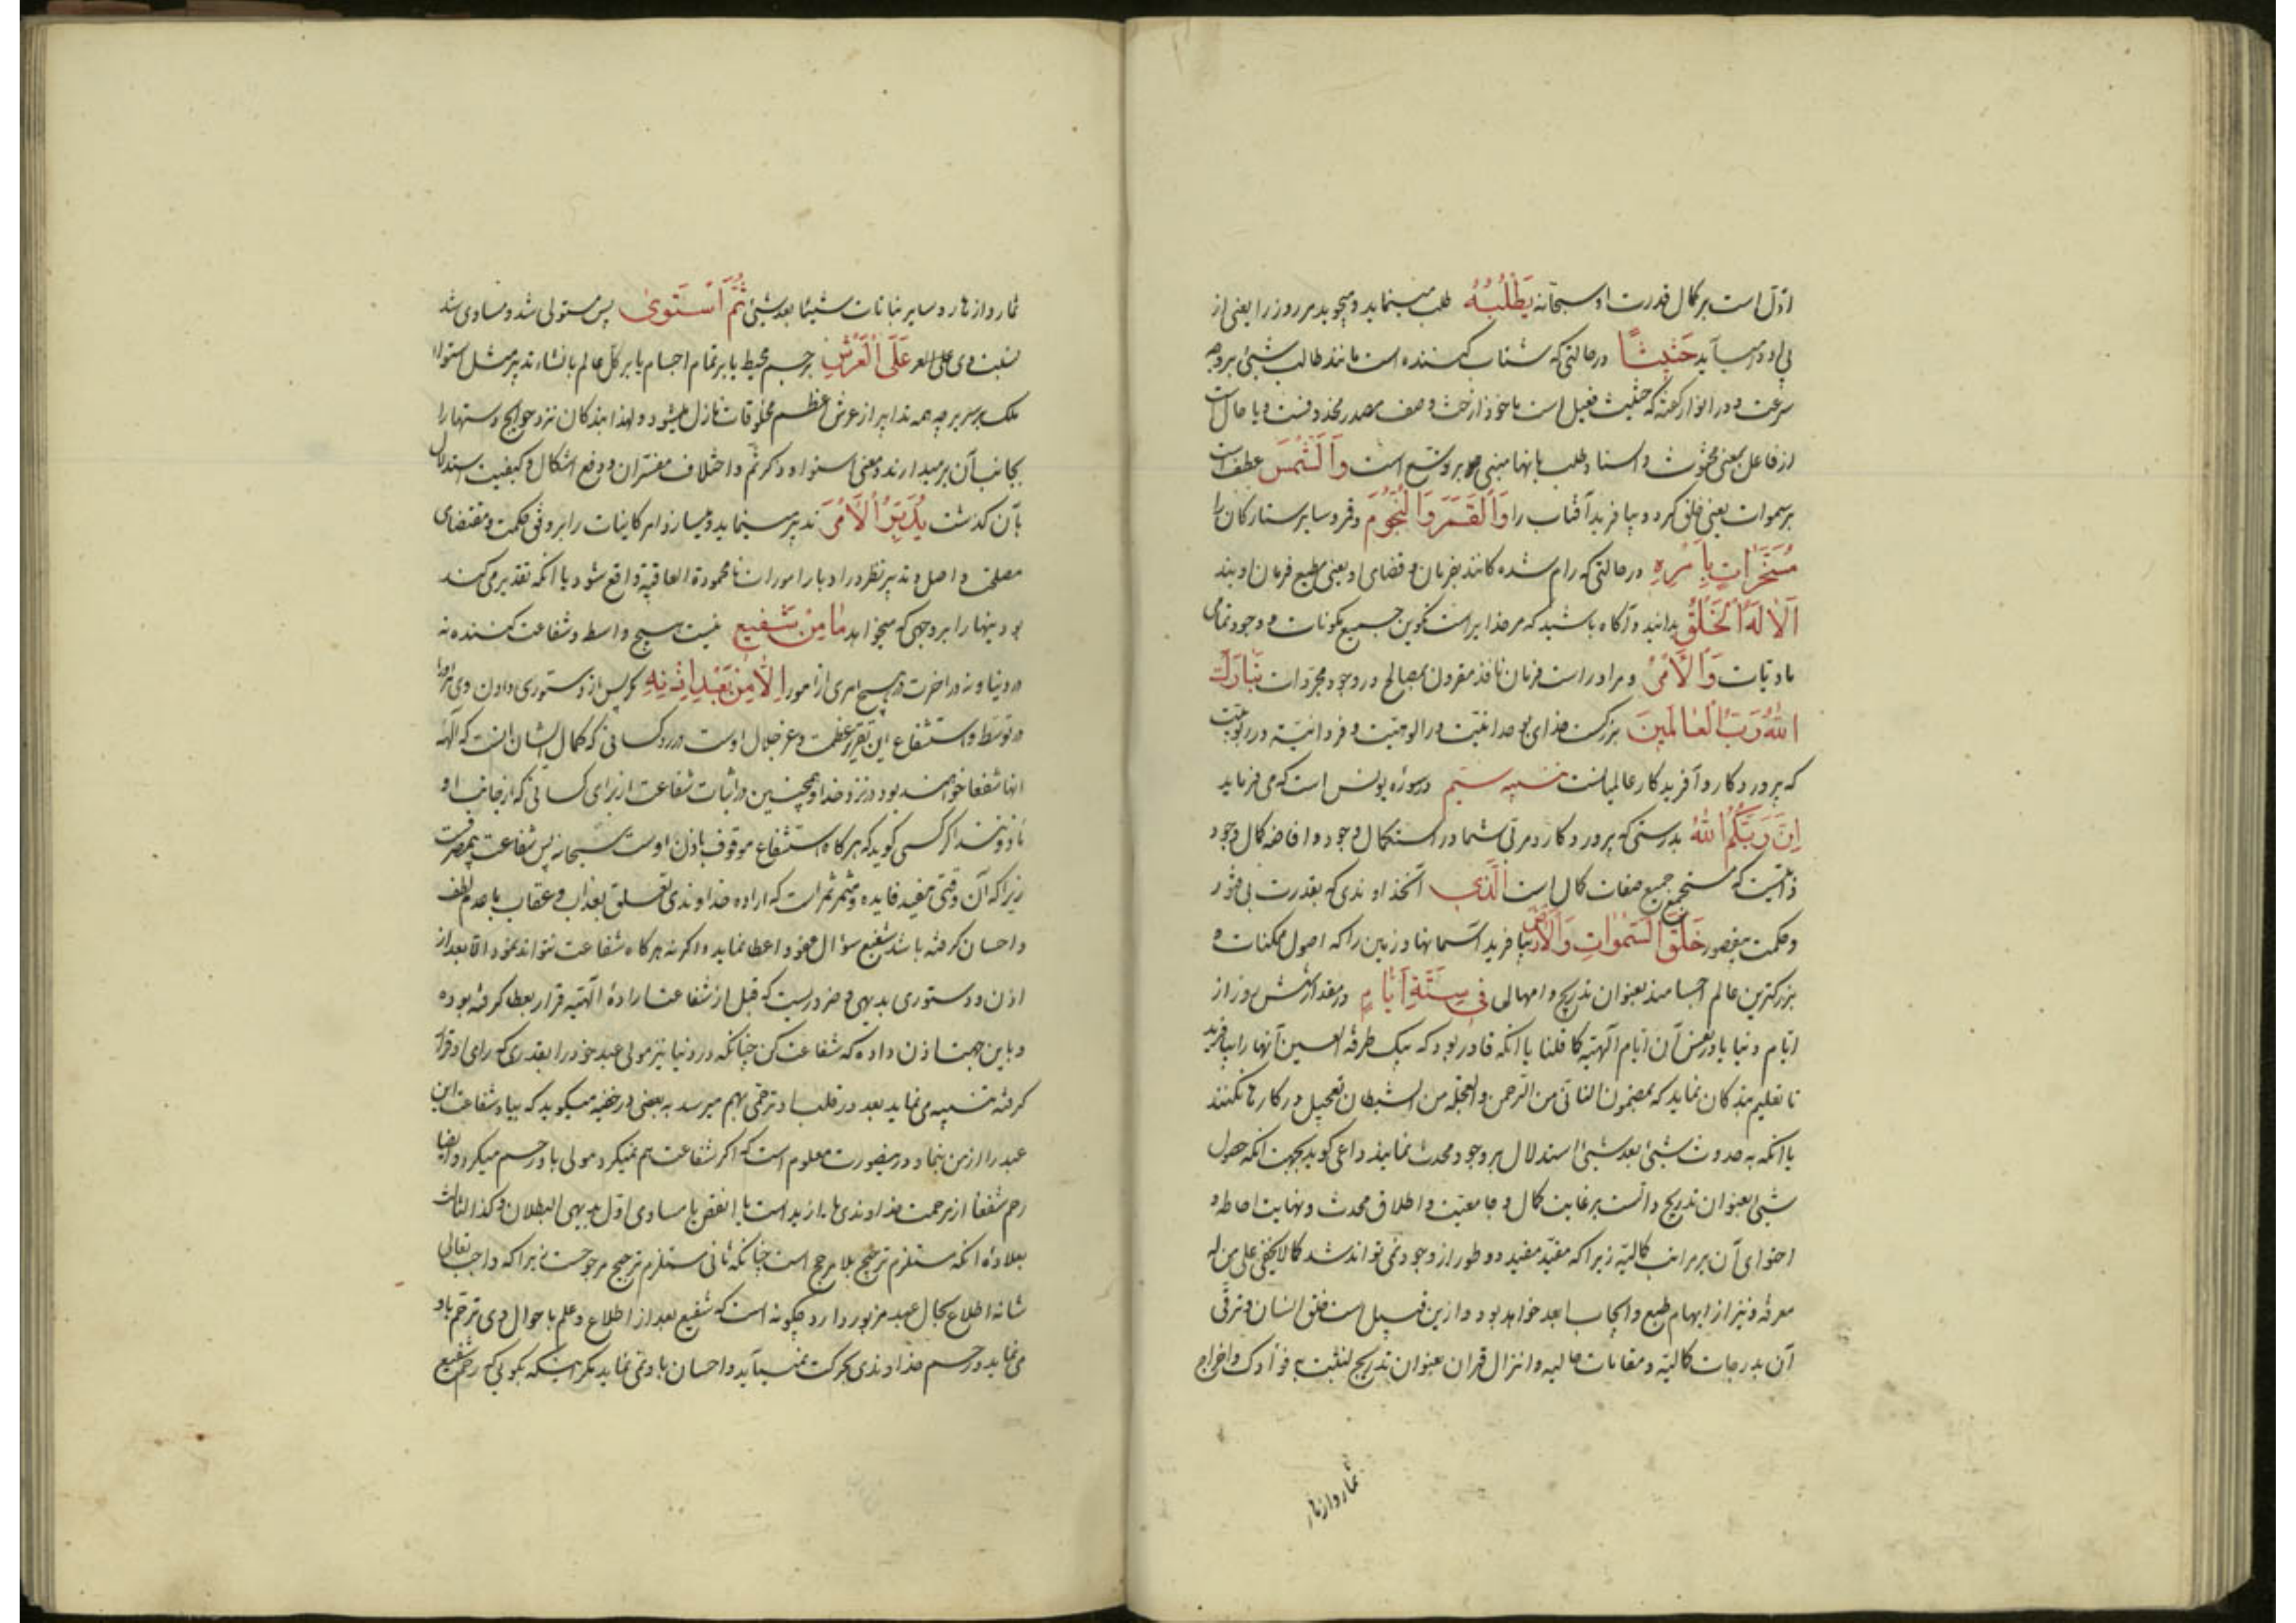 ادلّ است بر کمال قدرت او سبحانه یَطْلُبُهُ طلب مینماید و میجوید مر روز را یعنی از
پی او در میآید حَثیثاً در حالتی که شتاب کننده است مانند طالب شیئ بر وجه
سرعت و در انوار کفته که حثیث فعیل است ماخوذ از حث و صف مصدر محذوفست و یا حال است
از فاعل بمعنی محثوث و اسناد طلب بانها مبنی بر توسع است وَالشَّمسَ عطف است
بر سموات یعنی خلق کرد و بیافرید آفتاب را وَالْقَمَرَ وَالنُّجُومَ و قمر و سایر ستارکان را
مُسَخَّراتٍ بِاَمْرِهِ در حالتی که رام شده کانند بفرمان و قضای او یعنی مطیع فرمان اویند
اَلا لَهُ الْخَلْقُ بدانید و آکاه باشید که مر خدایراست تکوین جمیع مکونات و وجود تمامی
مادیات وَالْاَمْرُ و مر او راست فرمان نافذ مقرون بمصالح در وجود مجردات تَبارَکَ
اللهُ رَبُّ الْعالَمینَ بزرکست خدای بوحدانیت در الوهیت و فردانیت در ربوبیت
که پروردکار و آفریدکار عالمیانست تنبیه ستیم در سوره یونس است که می فرماید
اِنَّ رَبَّکُمُ اللهُ بدرستی که پروردکار و مربی شما در استکمال وجود و افاضه کمال وجود
ذاتیست که مستجمع جمیع صفات کمال است اَلَّذی آنخداوندی که بقدرت بی فتور
و حکمت بیقصور خَلَقَ السَّمٰواتِ وَالْاَرْضَ بیافرید آسمانها و زمین را که اصول ممکنات و
بزرکترین عالم اجسامند بعنوان تدریج و امهال فی سِتَّةِ اَیّامٍ در مقدار شش روز از
ایام دنیا یا در بعض آن ایام الهیه کما قلنا با انکه قادر بود که بیک طرفة العین آنها را بیافرید
تا تعلیم بندکان نماید که بمضمون التانی من الرحمن والعجلة من الشیطان تعجیل در کارها نکنند
یا انکه به حدوث شیئ بعد شیئ استدلال بر وجود محدث نمایند داعی کوید بجهت انکه حصول
شیئ بعنوان تدریج دالست بر غایت کمال و جامعیت و اطلاق محدث و نهایت احاطه و
احتوای آن بر مراتب کمالیه زیرا که مقید مفید دو طور از وجود نمی تواند شد کما لا یخفی علی من له
معرفة و نیز از ایهام طبع و ایجاب ابعد خواهد بود و ازین قبیل است خلق انسان و ترقی
آن بدرجات کمالیه و مقامات عالیه و انزال قران بعنوان تدریج لنثبت به فوادک و اخراج
ثمار و ازهار
ثمار و ازهار و سایر نباتات شیئا بعد شیئ ثُمَّ اسْتَوی پس مستولی شد و مساوی شد
نسبت وی عَلَی الْعَرْشِ بر جسم محیط یا بر تمام اجسام یا بر کل عالم بانشاء تدبیر مثل استواء
ملک بر سریر چه همه تدابیر از عرش اعظم بمخلوقات نازل میشود و لهذا بندکان نزد حوایج دستها را
بجانب آن بر میدارند و معنی استواء و ذکر ثم و اختلاف مفسران و دفع اشکال و کیفیت استدلال
بآن کذشت یُدَبِّرُ الْاَمْرَ تدبیر مینماید و میسازد امر کاینات را بر وفق حکمت و مقتضای
مصلحت و اصل تدبیر نظر در ادبار امور است تا محمودة العاقبة واقع شود یا انکه تقدیر می کند
بودنیها را بر وجهی که میخواهد ما مِنْ شَفیعٍ نیست هیچ واسطه و شفاعت کننده نه
در دنیا و نه در اخرت در هیچ امری از امور اِلّا مِنْ بَعْدِ اِذْنِهِ مکر پس از دستوری دادن وی مر او را
در توسط و استشفاع این تقریر عظمت و عز جلال اوست و رد کسانی که کمال ایشان انست که آلهه
انها شفعا خواهند بود در نزد خدا و همچنین در اثبات شفاعت از برای کسانی که از جانب او
ماذونند اکر کسی کوید که هر کاه استشفاع موقوف باذن اوست سبحانه پس شفاعت بیمصرفست
زیرا که آن وقتی مفید فایده و مثمر ثمر است که اراده خداوندی تعلق بعذاب و عقاب یا عدم لطف
و احسان کرفته باشد شفیع سؤال عفو و اعطا نماید و اکر نه هر کاه شفاعت نتواند نمود الا بعد از
اذن و دستوری بدیهی و ضروریست که قبل از شفاعت ارادۀ الهیه قرار بعطا کرفته بوده
و باین جهت اذن داده که شفاعت کن چنانکه در دنیا نیز مولی عبد خود را بقدری که رای او قرار
کرفته تنبیه می نماید بعد در قلب او ترحمی بهم میرسد به بعضی در خفیه میکوید که بیا و شفاعت این
عبد را از من بنما و در اینصورت معلوم است که اکر شفاعت هم نمیکرد مولی باو رحم میکرد و ایضا
رحم شفعا از مرحمت خداوندی یا ازید است یا انقص یا مساوی اول بدیهی البطلان و کذا الثالث
بعلاوۀ انکه مستلزم ترجیح بلا مرجح است چنانکه ثانی مستلزم ترجیح مرجوحست زیرا که واجب تعالی
شانه اطلاع بحال عبد مزبور دارد چکونه است که شفیع بعد از اطلاع و علم باحوال وی ترحم باو
می نماید و رحم خداوندی بحرکت نمیآید و احسان باو نمی نماید مکر اینکه بکوئی که رحم شفیع